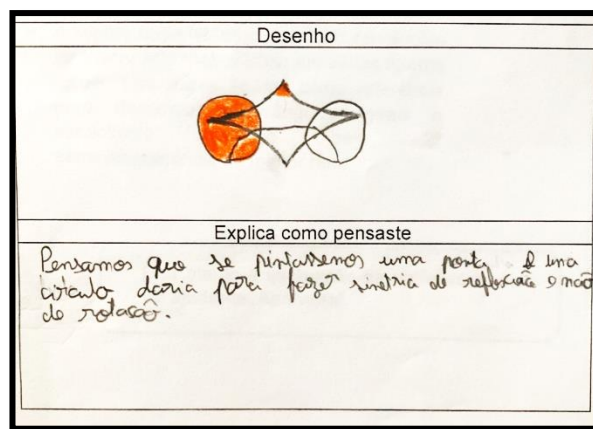 Desenho
Explica como pensaste
Pensamos que se pintassemos uma ponta e uma
círculo daria para fazer simetria de reflexão e não
de rotação.